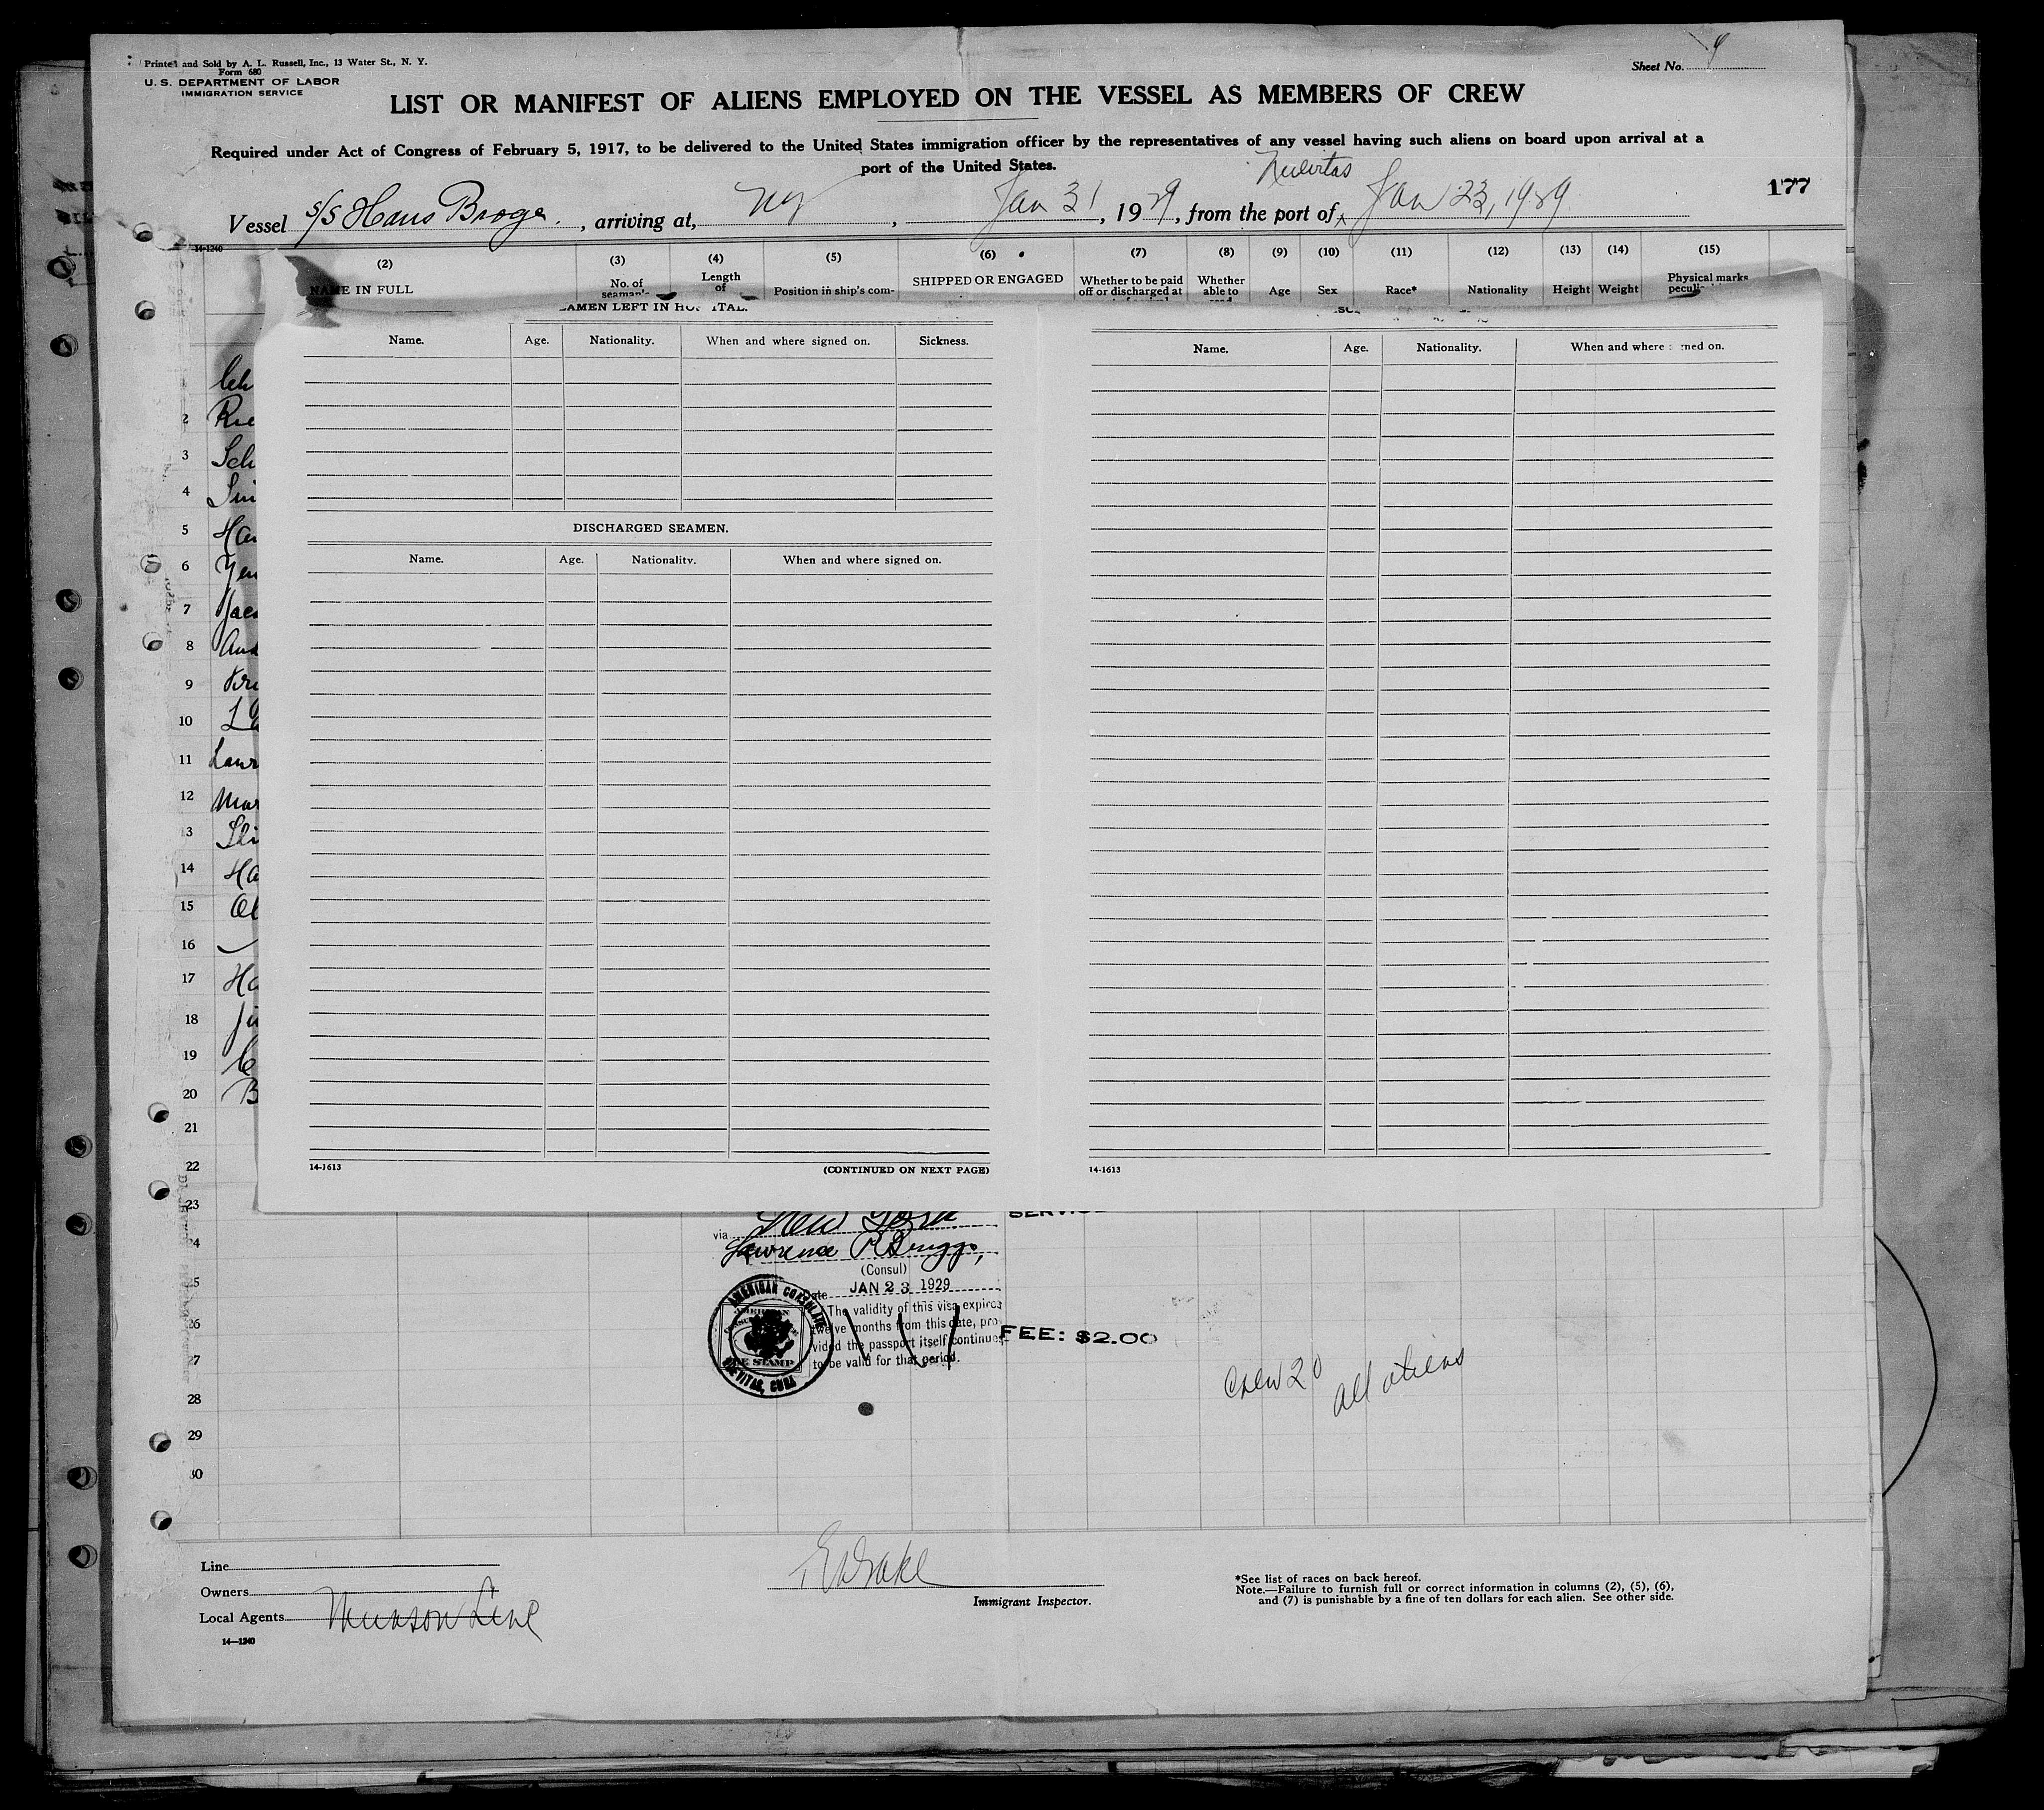 Printed and Sold by A. L. Russell, Inc., 13 Water St., N. Y.
Form 680
U. S. DEPARTMENT OF LABOR
IMMIGRATION SERVICE
Sheet No.
LIST OR MANIFEST OF ALIENS EMPLOYED ON THE VESSEL AS MEMBERS OF CREW
Required under Act of Congress of February 5, 1917, to be delivered to the United States immigration officer by the representatives of any vessel having such aliens on board upon arrival at a
port of the United States.
177
Vessel S/S Hans Broge, arriving at, NY, Jan 31, 1929, from the port of Nuevitas Jan 23, 1929
14-1240
(2) (3) (4) (5) (6) (7) (8) (9) (10) (11) (12) (13) (14) (15)
NAME IN FULL No. of seaman's Length of Position in ship's com- SHIPPED OR ENGAGED Whether to be paid off or discharged at Whether able to read Age Sex Race* Nationality Height Weight Physical marks
SEAMEN LEFT IN HOSPITAL.
Name. Age. Nationality. When and where signed on. Sickness.
Name. Age. Nationality. When and where signed on.
DISCHARGED SEAMEN.
Name. Age. Nationality. When and where signed on.
2 Rie
3 Sch
4 Sm
5 Han
6 Jen
7 Jaco
8 And
9 Kri
10 La
11 Laur
12 Mar
13
14 Ha
15 Ol
16
17 Ha
18
19
20 B
21
22
23
24
25
26
27
28
29
30
14-1613 (CONTINUED ON NEXT PAGE)
14-1613
SERVICE
via New York
Lawrence P. Briggs,
(Consul)
Date JAN 23 1929
The validity of this visa expires
twelve months from this date, pro-
vided the passport itself continues
to be valid for that period.
AMERICAN CONSULATE
NUEVITAS, CUBA
FEE STAMP
FEE: $2.00
Crew 20 all aliens
Line
Owners
Local Agents Munson Line
14—1240
E Drake
Immigrant Inspector.
*See list of races on back hereof.
Note.—Failure to furnish full or correct information in columns (2), (5), (6),
and (7) is punishable by a fine of ten dollars for each alien. See other side.